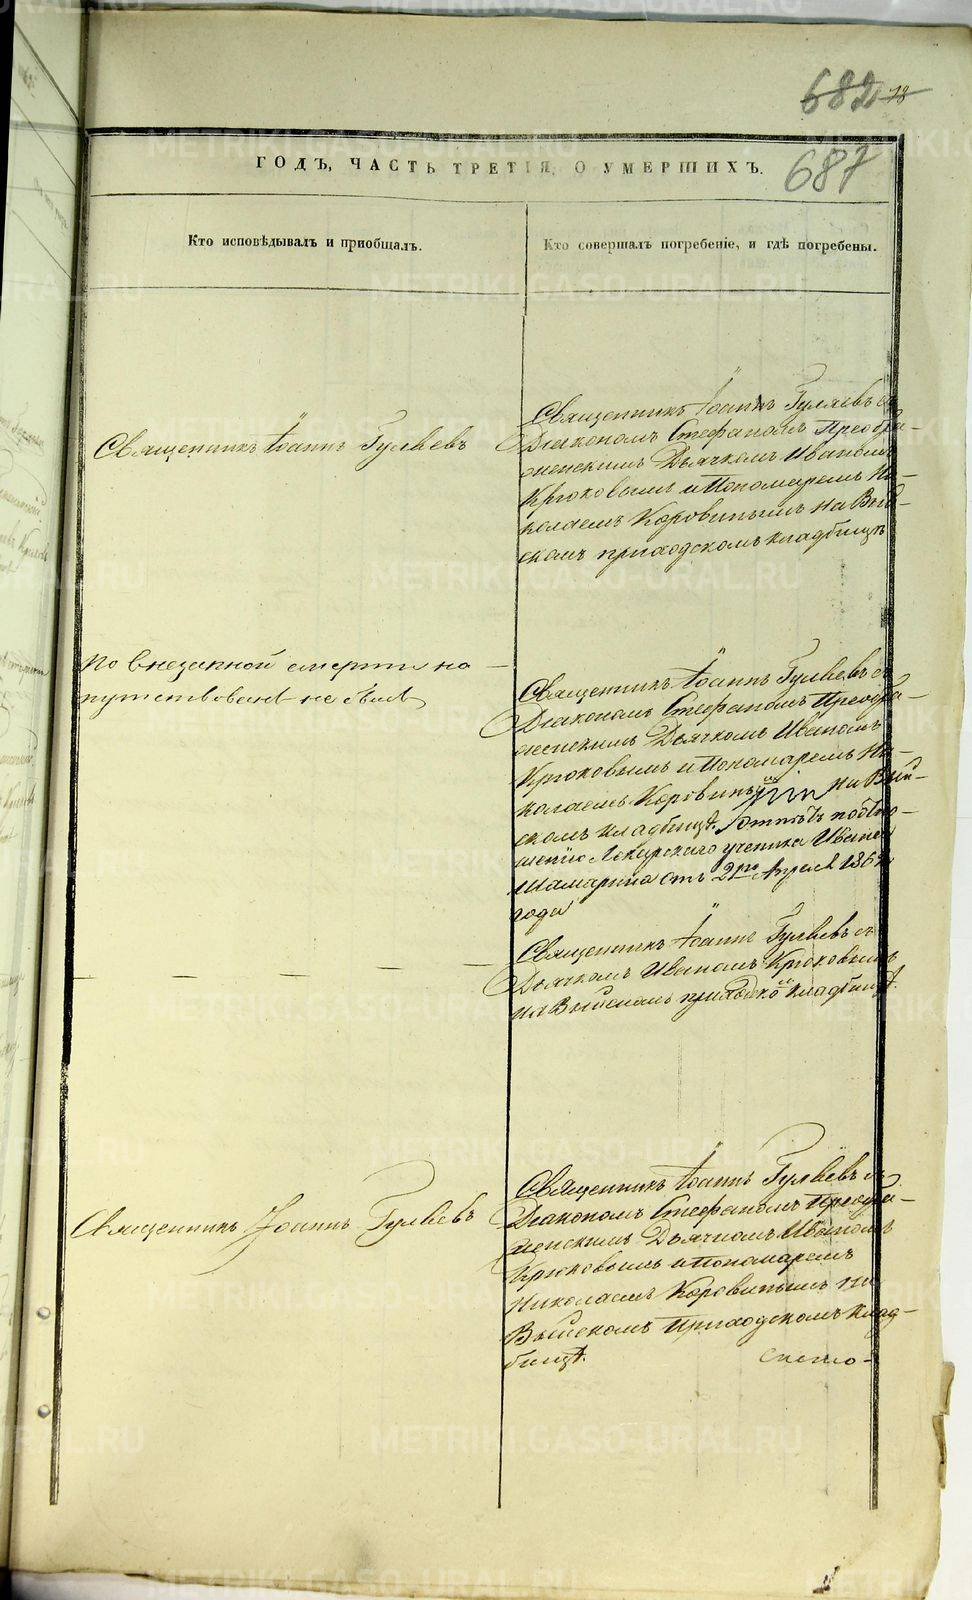 682 78
687
ГОДЪ, ЧАСТЬ ТРЕТІЯ, О УМЕРШИХЪ.
Кто исповѣдывалъ и пріобщалъ.
Кто совершалъ погребеніе, и гдѣ погребены.
Священникъ Іоаннъ Гуляевъ
Священникъ Іоаннъ Гуляевъ съ
Діакономъ Стефаномъ Преобра-
женскимъ Дьячкомъ Иваномъ
Крюковымъ и Пономаремъ Ни-
колаемъ Коровинымъ на Вый-
скомъ приходскомъ кладбищѣ
По внезапной смерти на-
путствованъ не былъ
Священникъ Іоаннъ Гуляевъ съ
Діакономъ Стефаномъ Преобра-
женскимъ Дьячкомъ Иваномъ
Крюковымъ и Пономаремъ Ни-
колаемъ Коровинымъ на Вый-
скомъ кладбищѣ. Отпѣтъ по отно-
шенію Лекарского ученика Ивана
Шамарина отъ 2го Апреля 186
года
Священникъ Іоаннъ Гуляевъ съ
Дьячкомъ Иваномъ Крюковымъ
на Выйскомъ приходско м кладбищѣ.
Священникъ Іоаннъ Гуляевъ
Священникъ Іоаннъ Гуляевъ съ
Діакономъ Стефаномъ Преобра-
женскимъ Дьячкомъ Иваномъ
Крюковымъ и Пономаремъ
Николаемъ Коровинымъ на
Выйскомъ Приходскомъ клад-
бищѣ.
METRIKI.GASO-URAL.RU